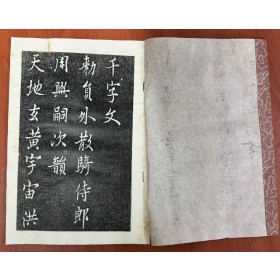 千字文
勑負外散騎侍郎
周興嗣次韻
天地玄黃宇宙洪